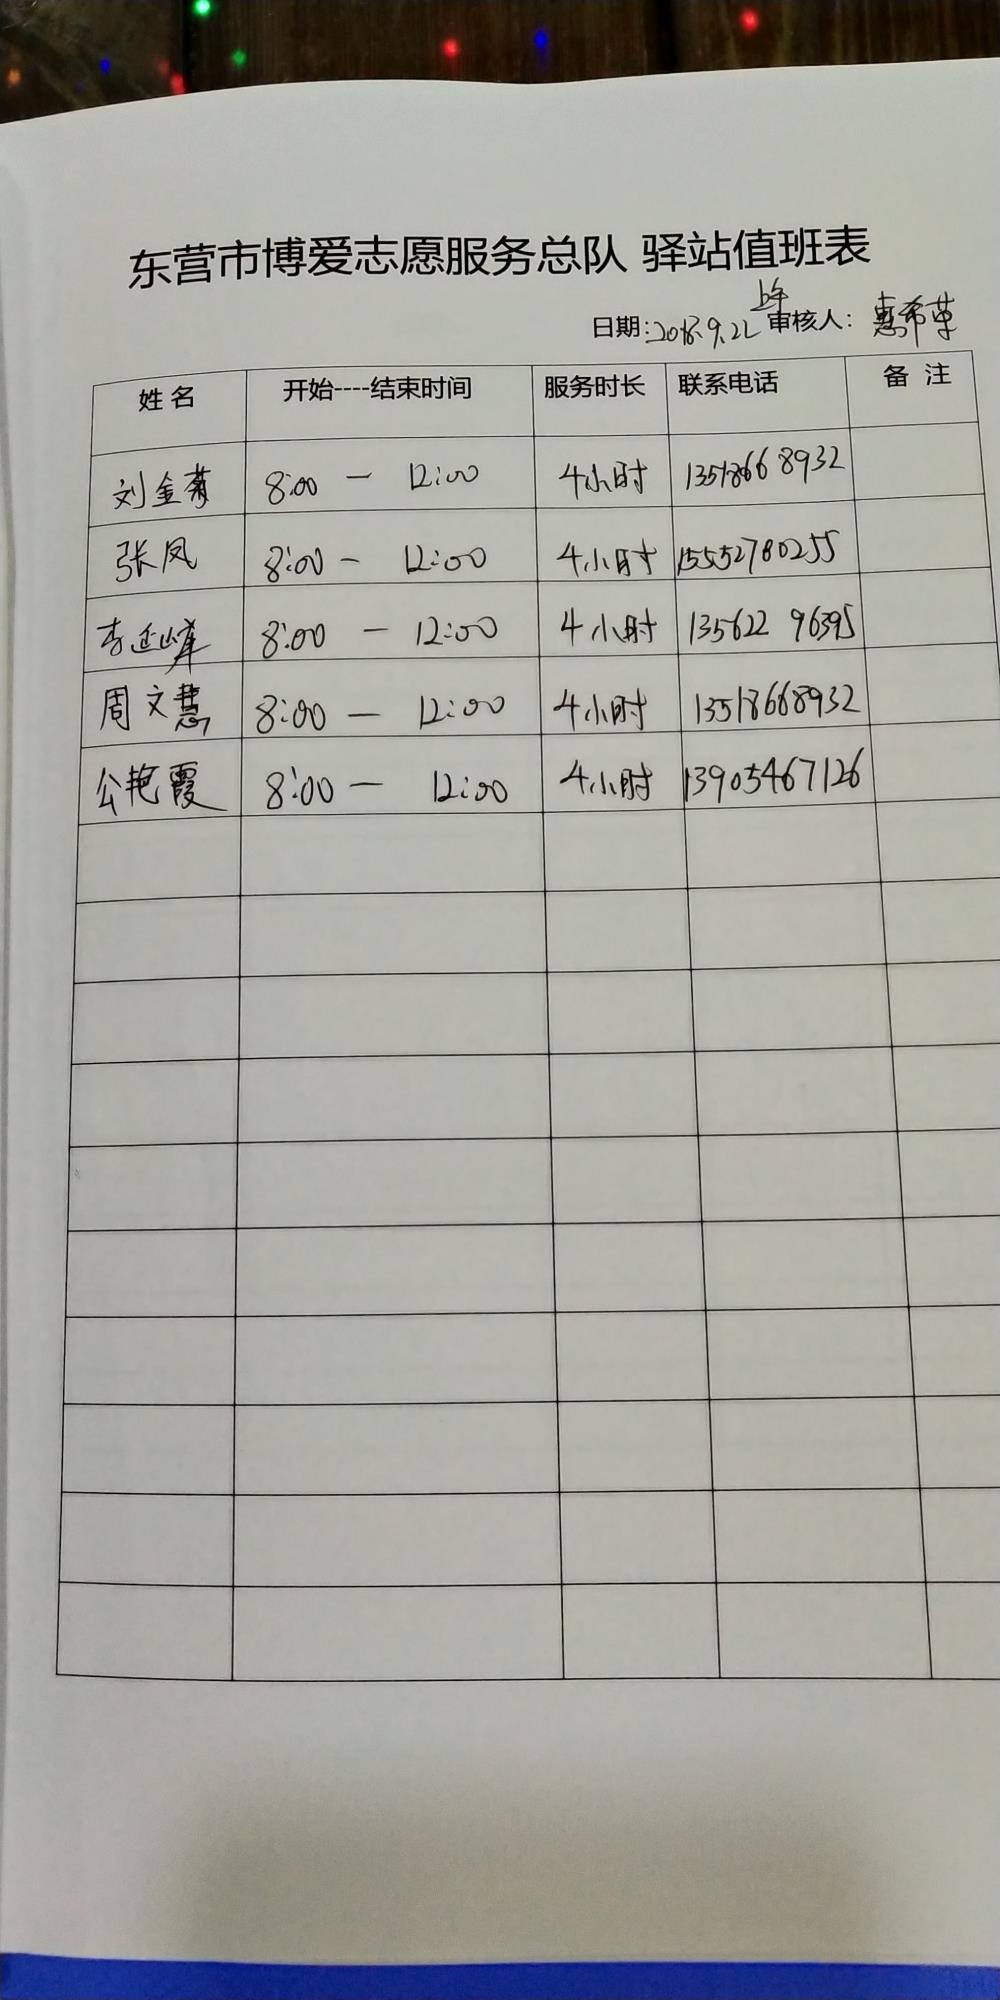 东营市博爱志愿服务总队 驿站值班表
上午
日期:2018.9.22 审核人: 惠希革
姓名 开始----结束时间 服务时长 联系电话 备 注
刘金菊 8:00 — 12:00 4小时 13518668932
张凤 8:00 — 12:00 4小时 15552780255
李延峰 8:00 — 12:00 4小时 135622 96395
周文慧 8:00 — 12:00 4小时 13518668932
公艳霞 8:00 — 12:00 4小时 13905467126